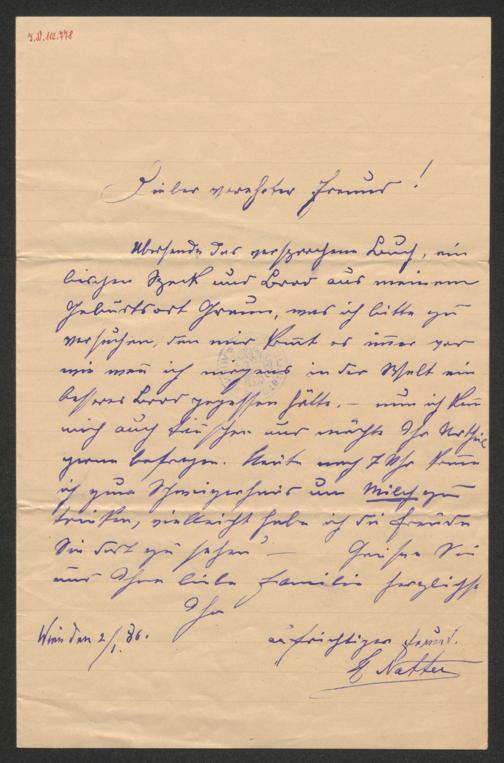 J.N. 112.778
Lieber verehrter Freund!
Übersende das versprochene Buch, ein
bischen Speck und Brod aus meinem
Geburtsort Graun, was ich bitte zu
versuchen, den mir komt es immer vor
wie wenn ich nirgens in der Welt ein
besseres Brod gegessen hätte. – nun ich kan
mich auch täuschen und möchte Ihr Urtheil
gerne befragen. Heute nach 7 Uhr komme
ich zum Schweigerhaus um Milch zu
trinken, vielleicht habe ich die Freude
Sie dort zu sehen? – Grüsse Sie
und Ihre liebe Familie herzlichst
Ihr
Wien den 2/1. 86.
aufrichtiger Freund.
H Natter